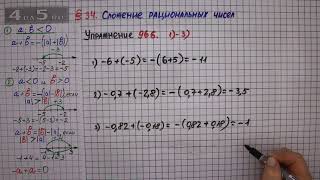 4 на 5 .com
§ 34. Сложение рациональных чисел
Упражнение 966. 1)-3)
① a;b<0
a+b=-(|a|+|b|)
-2+(-3)=-2-3=-5
② a<0 и b>0
|a|>|b|
-1+4=4-1=3
-a+a=0
1) -6+(-5)=-(6+5)=-11
2) -0,7+(-2,8)=-(0,7+2,8)=-3,5
3) -0,82+(-0,18)=-(0,82+0,18)=-1